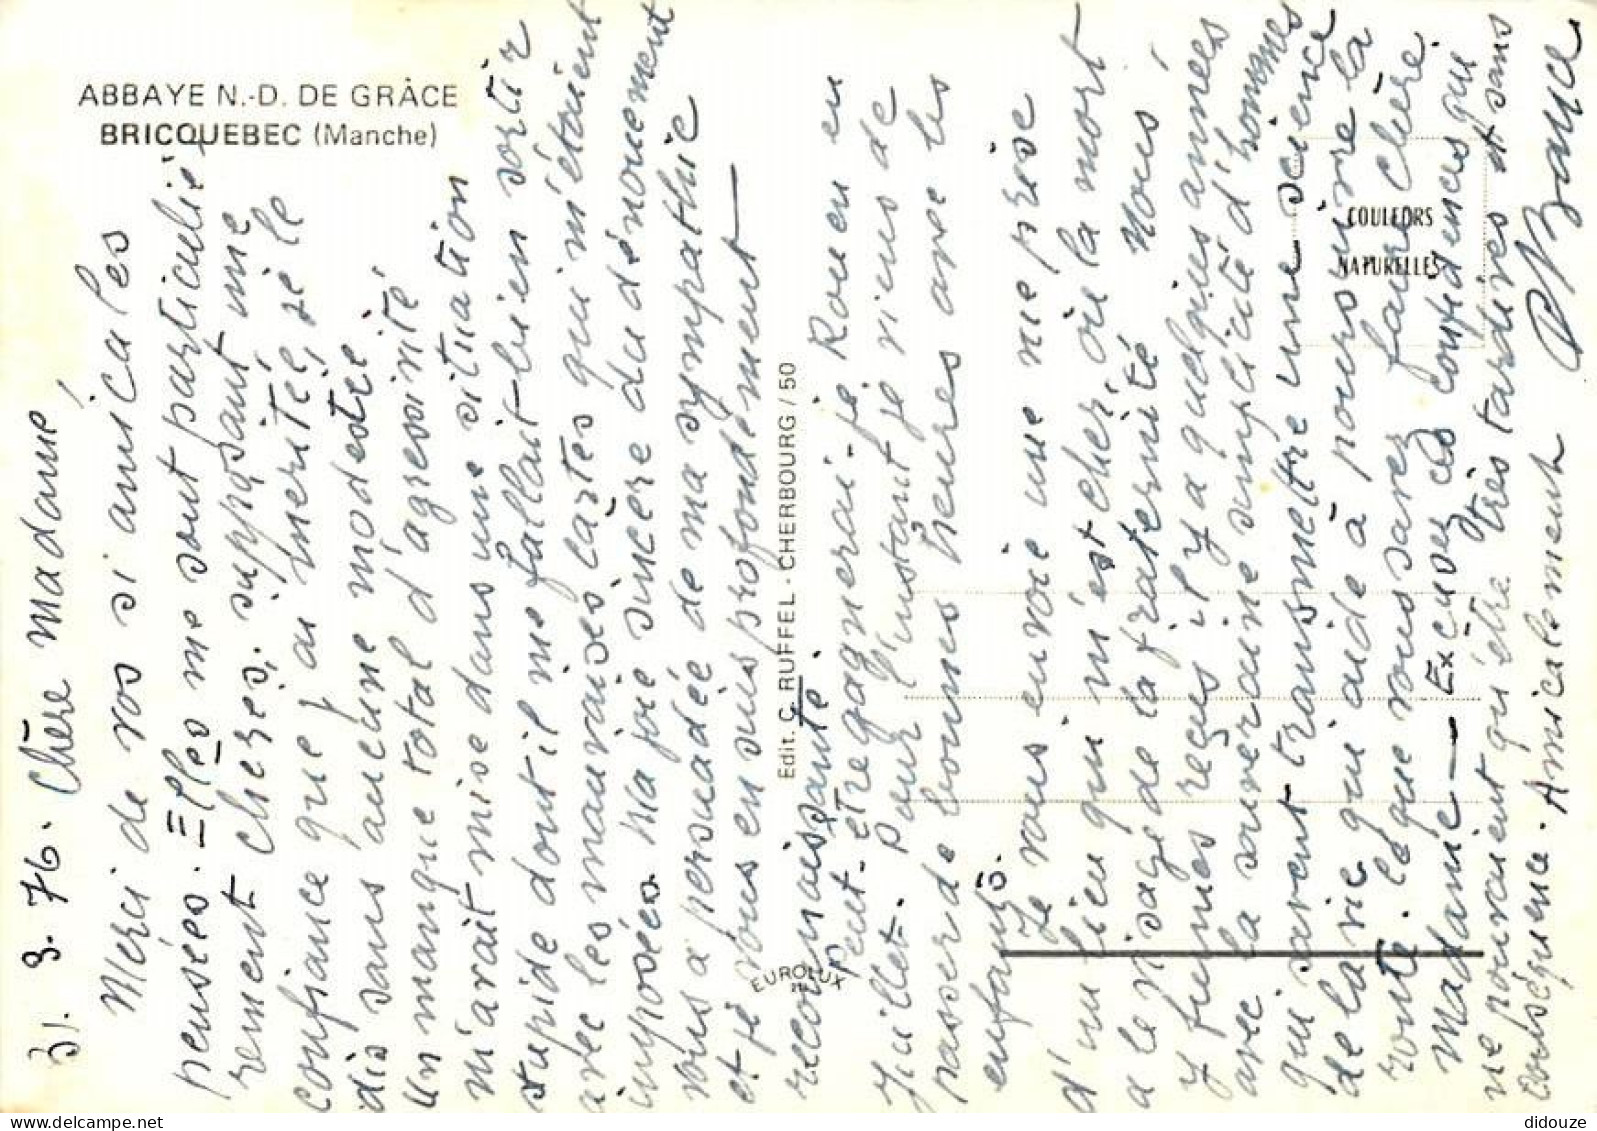 ABBAYE N.-D. DE GRÂCE
BRICQUEBEC (Manche)
31. 3. 76. Chère Madame,
Merci de vos si amicales
pensées. Elles me sont particuliè-
rement chères, supposant une
confiance que j'ai méritée, je le
dis sans aucune modestie,
un manque total d'agressivité
m'avait mise dans une situation
stupide dont il me fallait bien sortir
avec les mauvaises cartes qui m'étaient
imposées. Ma joie sincère du dénouement
vous a persuadée de ma sympathie
et je vous en suis profondément
reconnaissante.
Peut-être gagnerai-je Rouen en
Juillet. Pour l'instant je viens de
passer de bonnes heures avec les
enfants.
Je vous envoie une vie prise
d'un lieu qui m'est cher, où la mort
a le visage de la fraternité. Nous
y fûmes reçus il y a quelques années
avec la souveraine simplicité d'hommes
qui savent transmettre une science
de la vie qui aide à poursuivre la
route. Ce que vous savez faire Chère
Madame — Excusez ces confidences qui
ne pouvaient qu'être très tardives et sans
conséquence. Amicalement
Edit. C. RUFFEL - CHERBOURG / 50
EUROLUX
COULEURS
NATURELLES
didouze